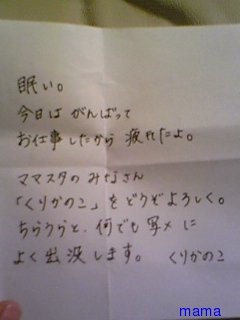 眠い。
今日は がんばって
お仕事したから 疲れたよ。
ママスタのみなさん
「くりかのこ」をどうぞよろしく。
ちょうちょうと、何でも写メに
よく出没します。 くりかのこ
mama